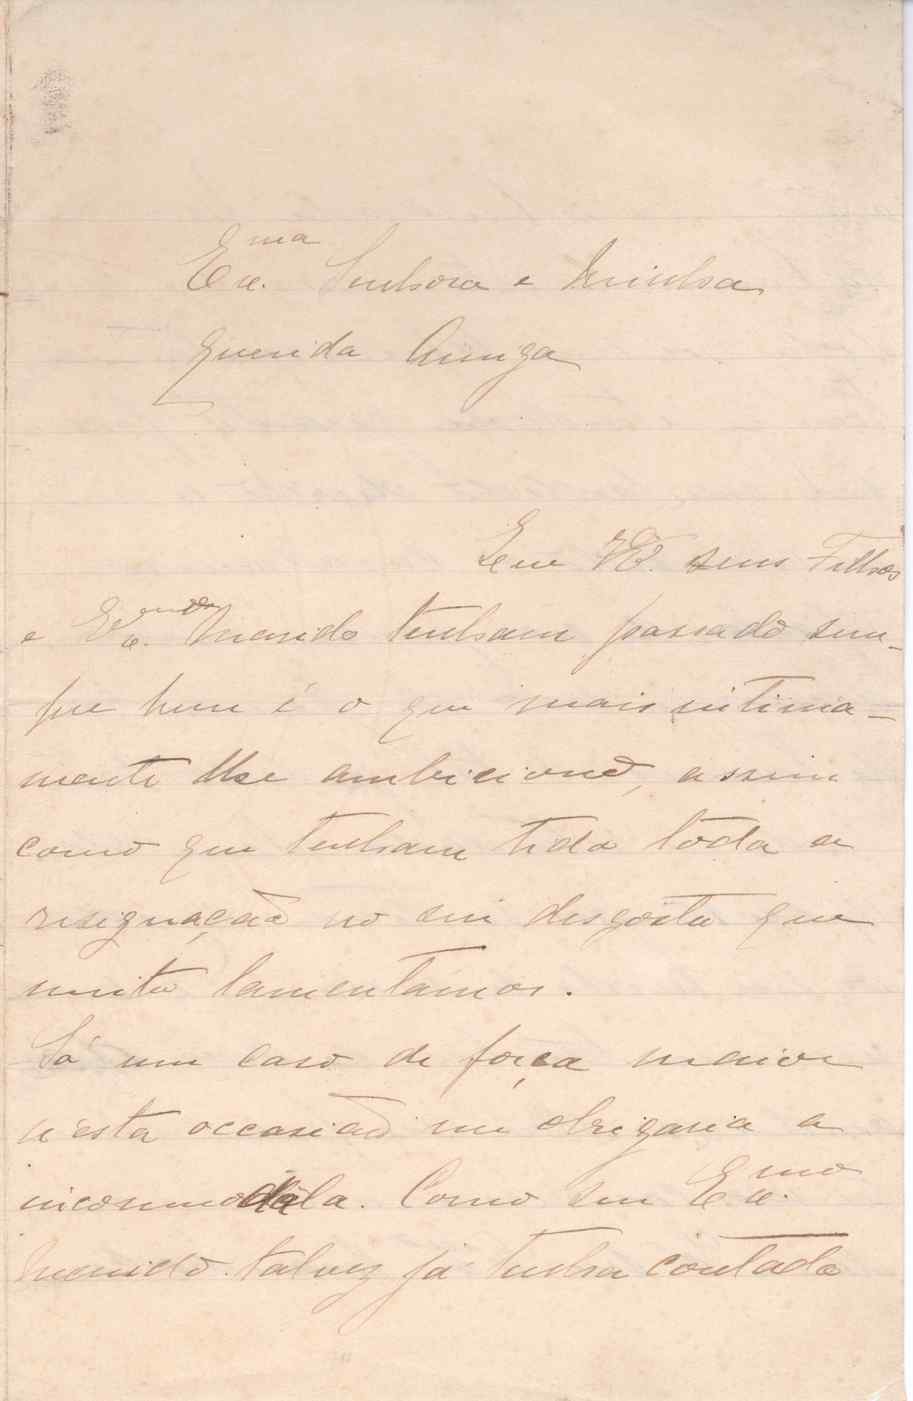 Ex.ma Senhora e Minha
querida Amiga
Que V.E. seus Filhos
e Ex.mo Marido tenham passado sem-
pre bem é o que mais intima-
mente lhe ambiciono, assim
como que tenham tido toda a
resignação no seu desgosto que
muito lamentamos.
Só um caso de força maior
n'esta occasião me obrigaria a
incommodála. Como seu Ex.mo
Marido talvez já tenha contado